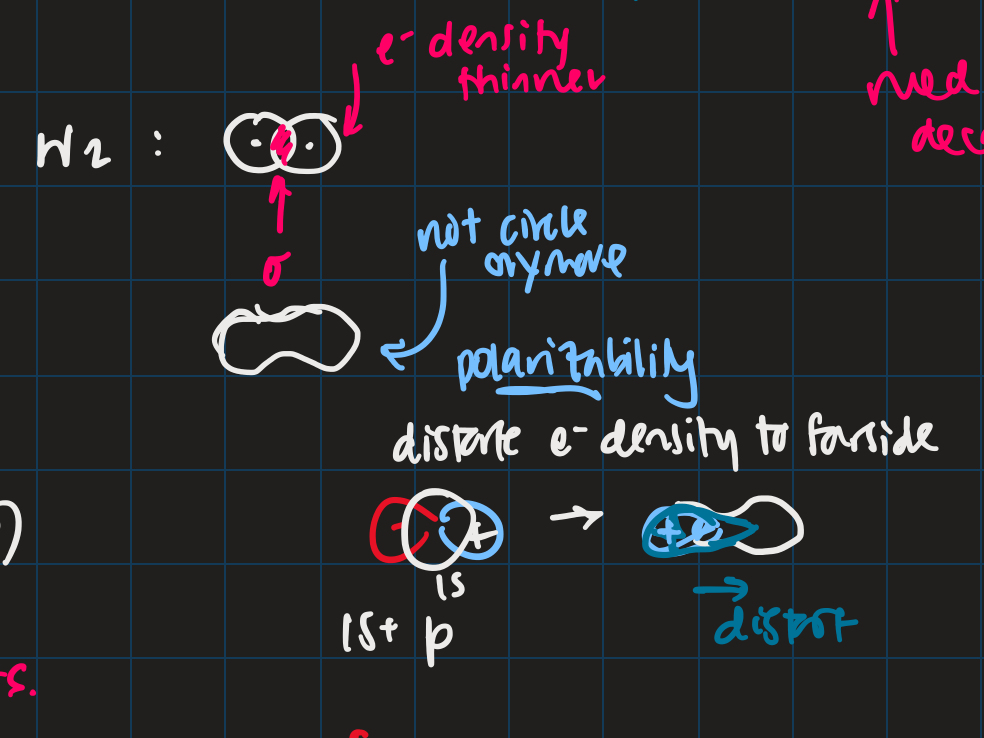 e⁻ density
thinner
need
H₂ :
σ
not circle
anymore
polarizability
distorte e⁻ density to farside
- +
+
1s
1s + p
distort
s.